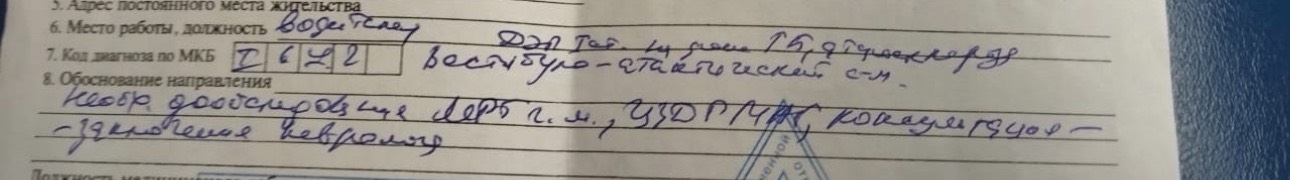 5. Адрес постоянного места жительства
6. Место работы, должность водитель
ДЭП на фоне ГБ,
7. Код диагноза по МКБ I 6 7 2 Вестибуло-атактический с-м.
8. Обоснование направления
необх. дообследование г.м., УЗДГ МАГ, консультация -
- заключение невролога